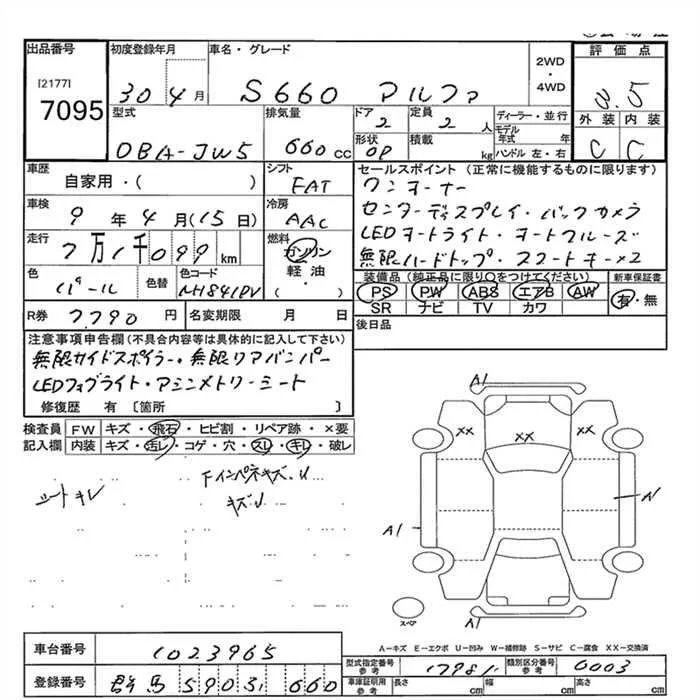 出品番号
[2177]
7095
初度登録年月
30年4月
車名・グレード
S660 アルファ
2WD
・
4WD
評価点
3.5
外装 内装
C C
型式
DBA-JW5
排気量
660cc
ドア
2
定員
2人
ディーラー・並行
モデル年式 年
ハンドル 左・右
形状
OP
積載
kg
車歴
自家用・( )
シフト
FAT
車検
9年4月(15日)
冷房
AAC
走行
7万1千099km
燃料
ガソリン
軽油
・
( )
色
パール
色替
色コード
NH841PV
R券
7790円
名変期限 月 日
セールスポイント(正常に機能するものに限ります)
ワンオーナー
センターディスプレイ・バックカメラ
LEDオートライト・オートクルーズ
無限ハードトップ・スマートキー×2
装備品(純正品に限り○をつけてください)
PS PW ABS エアB AW
SR ナビ TV カワ
新車保証書
有・無
後日品
注意事項申告欄(不具合内容等は具体的に記入して下さい)
無限サイドスポイラー・無限リアバンパー
LEDフォグライト・アシンメトリーシート
修復歴 有〔箇所 〕
検査員記入欄
FW キズ・飛石・ヒビ割・リペア跡・×要
内装 キズ・汚レ・コゲ・穴・スレ・キレ・破レ
シートキレ
下インパネキズ.U
キズU
A1
XX XX XX
A1
A1
A1
スペア
A-キズ E-エクボ U-凹み W-補修跡 S-サビ C-腐食 XX-交換済
車台番号
1023965
登録番号
群馬 590 す 660
型式指定番号 参考
17981
類別区分番号 参考
0003
車庫証明用 参考
長さ cm 幅 cm 高さ cm